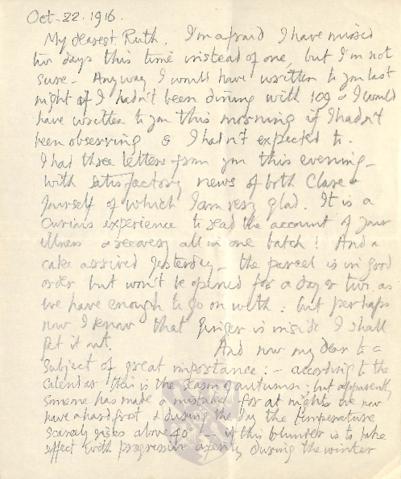 Oct. 22. 1916.
My dearest Ruth. I'm afraid I have missed
two days this time instead of one, but I'm not
sure. Anyway I would have written to you last
night if I hadn't been dining with 109 & I would
have written to you this morning if I hadn't
been observing & I hadn't expected to.
I had three letters from you this evening –
with satisfactory news of both Clare &
yourself of which I am very glad. It is a
curious experience to read the account of your
illness & recovery all in one batch! And a
cake arrived yesterday – the parcel is in good
order but won't be opened for a day or two, as
we have enough to go on with: but perhaps
now I know that ginger is inside I shall
get it out. And now my dear to a
subject of great importance: – according to the
Calendar this is the season of autumn; but apparently
someone has made a mistake for at nights we now
have a hard frost & during the day the temperature
scarcely rises above 40°. If this blunder is to take
effect with progressive severity during the winter